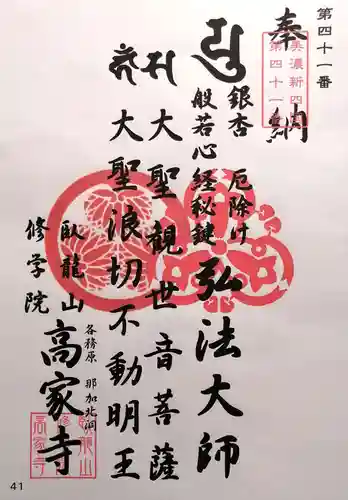 第四十一番
奉納
美濃新四国
第四十一番
銀杏 厄除け
般若心経秘鍵 弘法大師
大聖観世音菩薩
大聖浪切不動明王
臥龍山
修学院
各務原 那加北洞
高家寺
高家寺
41